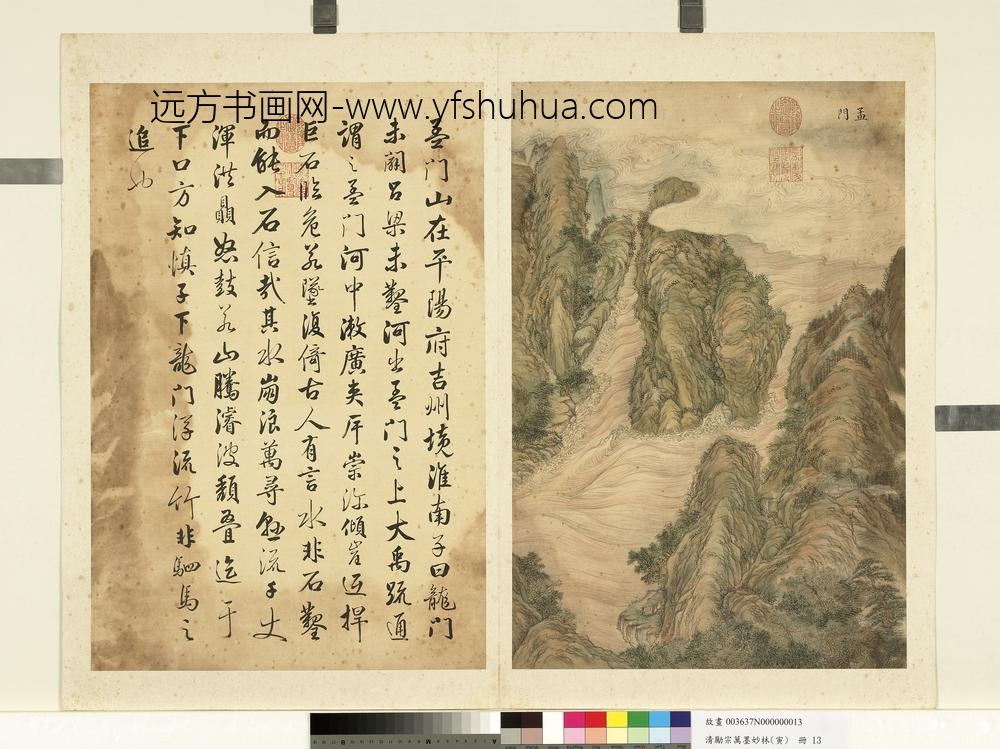 远方书画网-www.yfshuhua.com
孟門
孟门山在平陽府吉州境淮南子曰龍门
未闢吕梁未鑿河出孟门之上大禹疏通
謂之孟门河中漱廣夹岸崇深傾崖返捍
巨石临危若墜復倚古人有言水非石鑿
而能入石信哉其水崩浪萬尋懸流千丈
渾洪贔怒鼓若山騰濬波頽疊迄于
下口方知慎子下龍门浮流竹非駟馬之
追也
故畫 003637N000000013
清勵宗萬墨妙林(寅) 冊 13